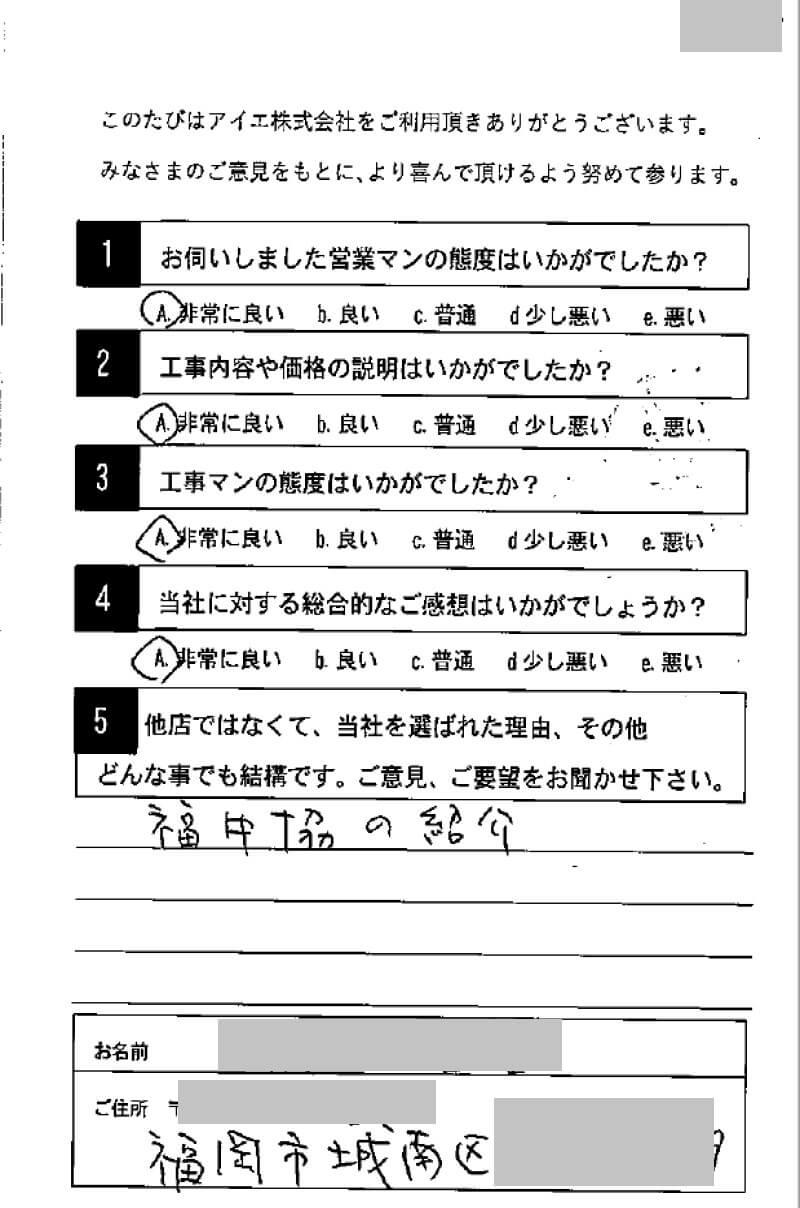 このたびはアイエ株式会社をご利用頂きありがとうございます。
みなさまのご意見をもとに、より喜んで頂けるよう努めて参ります。
1 お伺いしました営業マンの態度はいかがでしたか?
A. 非常に良い b. 良い c. 普通 d 少し悪い e. 悪い
2 工事内容や価格の説明はいかがでしたか?
A. 非常に良い b. 良い c. 普通 d 少し悪い e. 悪い
3 工事マンの態度はいかがでしたか?
A. 非常に良い b. 良い c. 普通 d 少し悪い e. 悪い
4 当社に対する総合的なご感想はいかがでしょうか?
A. 非常に良い b. 良い c. 普通 d 少し悪い e. 悪い
5 他店ではなくて、当社を選ばれた理由、その他
どんな事でも結構です。ご意見、ご要望をお聞かせ下さい。
福中協の紹介
お名前
ご住所 〒
福岡市城南区